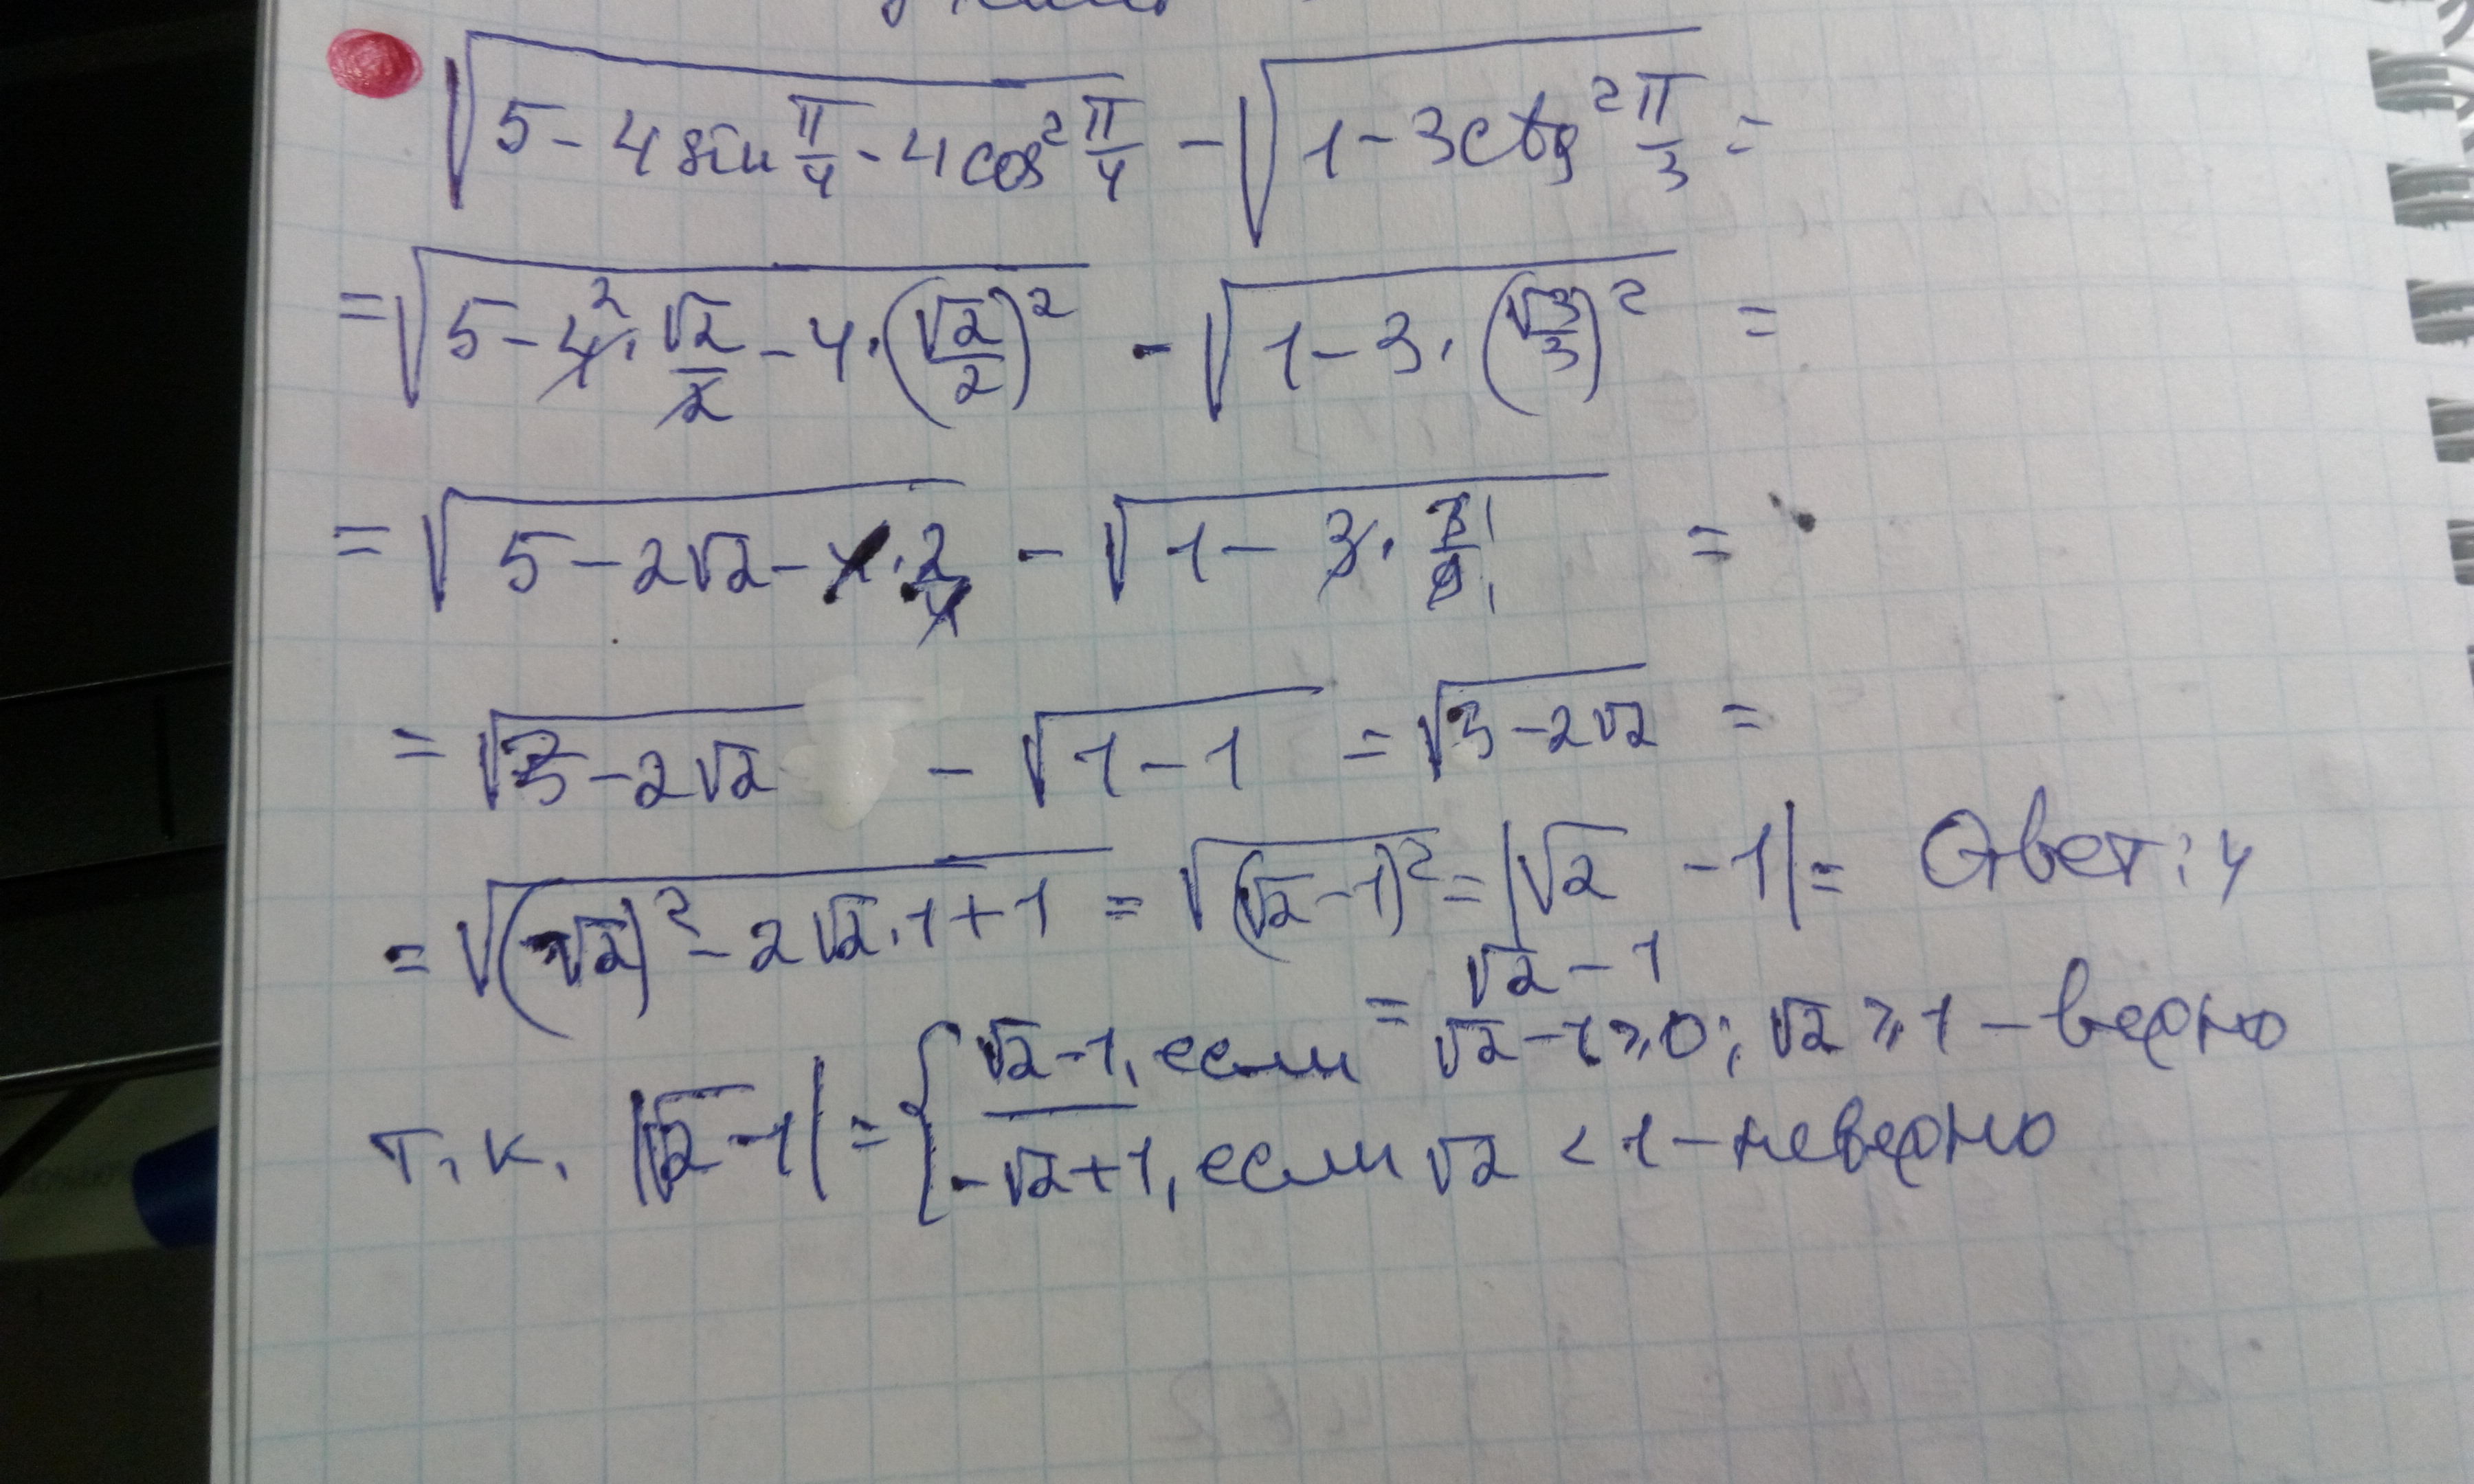 √(5 - 4 sin π/4 - 4cos² π/4) - √(1 - 3ctg² π/3) =
= √(5 - 4² · √2/2 - 4 · (√2/2)²) - √(1 - 3 · (√3/3)²) =
= √(5 - 2√2 - 4 · 2/4) - √(1 - 3 · 3/9) =
= √(3 - 2√2) - √(1 - 1) = √(3 - 2√2) =
= √((√2)² - 2√2 · 1 + 1) = √((√2 - 1)²) = |√2 - 1| = Ответ: 4
= √2 - 1
т. к. |√2 - 1| = { √2 - 1, если √2 - 1 ≥ 0; √2 ≥ 1 - верно
-√2 + 1, если √2 < 1 - неверно